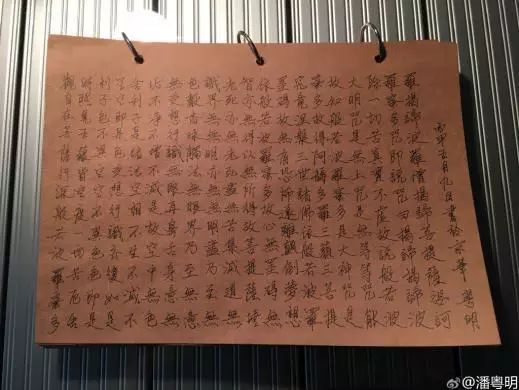 觀自在菩薩行深般若波羅蜜多
時照見五蘊皆空度一切苦厄舍
利子色不異空空不異色色即是
空空即是色受想行識亦復如是
舍利子是諸法空相不生不滅不
垢不淨不增不減是故空中無色
無受想行識無眼耳鼻舌身意無
色聲香味觸法無眼界乃至無意
識界無無明亦無無明盡乃至無
老死亦無老死盡無苦集滅道無
智亦無得以無所得故菩提薩埵
依般若波羅蜜多故心無罣碍無
罣碍故無有恐怖遠離顛倒夢想
究竟涅槃三世諸佛依般若波羅
蜜多故得阿耨多羅三藐三菩提
故知般若波羅蜜多是大神咒是
大明咒是無上咒是無等等咒能
除一切苦真實不虛故說般若波
羅蜜多咒即說咒曰揭諦揭諦波
羅揭諦波羅僧揭諦菩提薩婆訶
月九日書於京華 粵明
@潘粤明